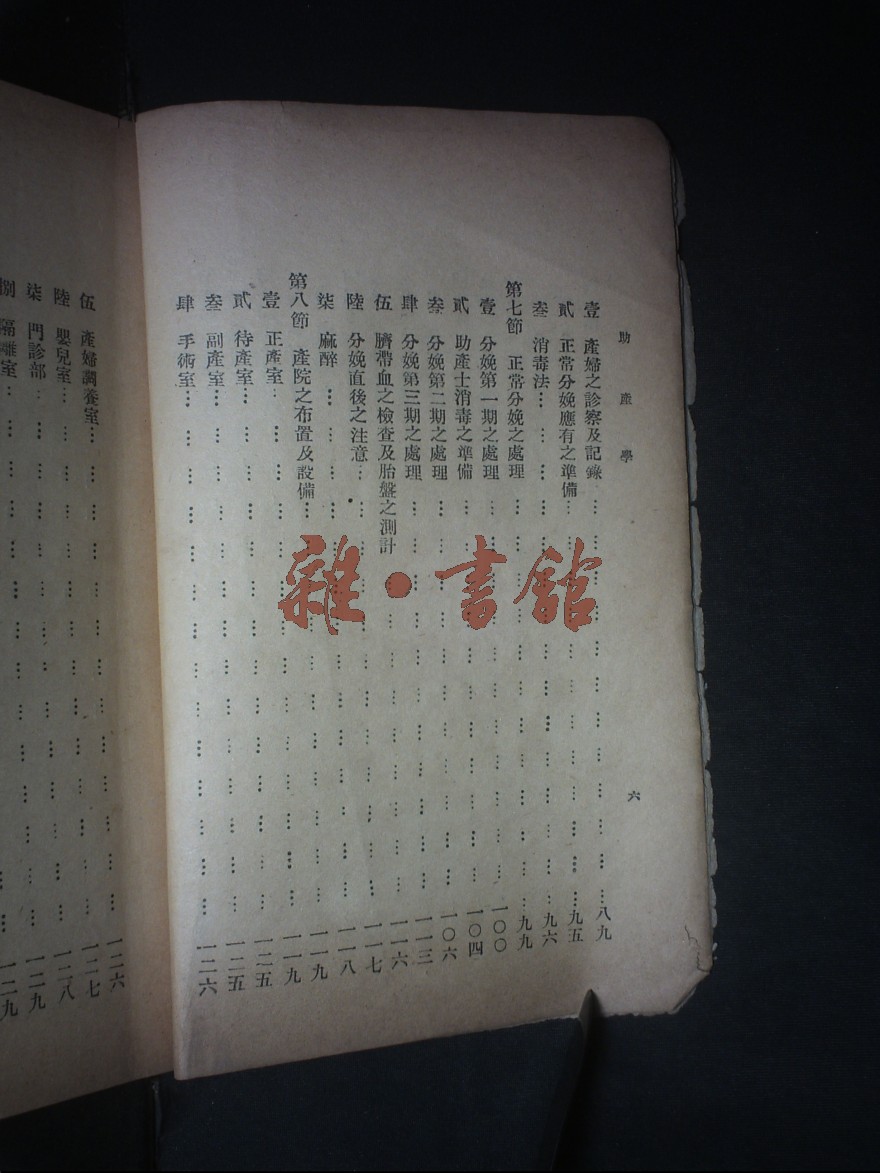 助產學 六
壹 產婦之診察及記錄 八九
貳 正常分娩應有之準備 九五
叁 消毒法 九六
第七節 正常分娩之處理 九九
壹 分娩第一期之處理 一〇〇
貳 助產士消毒之準備 一〇四
叁 分娩第二期之處理 一〇六
肆 分娩第三期之處理 一一三
伍 臍帶血之檢查及胎盤之測計 一一六
陸 分娩直後之注意 一一七
柒 麻醉 一一八
第八節 產院之布置及設備 一一九
壹 正產室 一一九
貳 待產室 一二五
叁 副產室 一二五
肆 手術室 一二六
伍 產婦調養室 一二六
陸 嬰兒室 一二七
柒 門診部 一二八
捌 隔離室 一二九
一二九
雜·書館